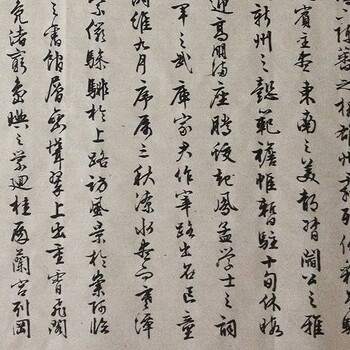 陳蕃之榻雄州霧列俊彩星馳
賓主盡東南之美都督閻公之雅
新州之懿範襜帷暫駐十旬休暇
迎高朋滿座騰蛟起鳳孟學士之詞
軍之武庫家君作宰路出名區童
時維九月序屬三秋潦水盡而寒潭
儼驂騑於上路訪風景於崇阿臨
之舊館層巒聳翠上出重霄飛閣
鳧渚窮島嶼之縈迴桂殿蘭宮列岡